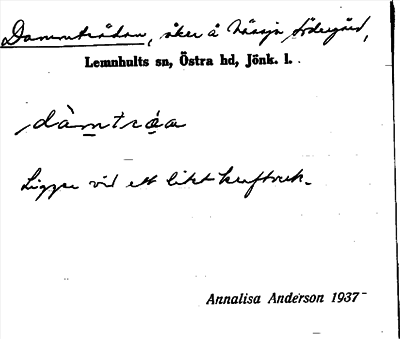 Dammträdan, åker å Nässja Södergård,
Lemnhults sn, Östra hd, Jönk. l.
dàmtrá̤a
Ligger vid ett litet kraftverk.
Annalisa Anderson 1937